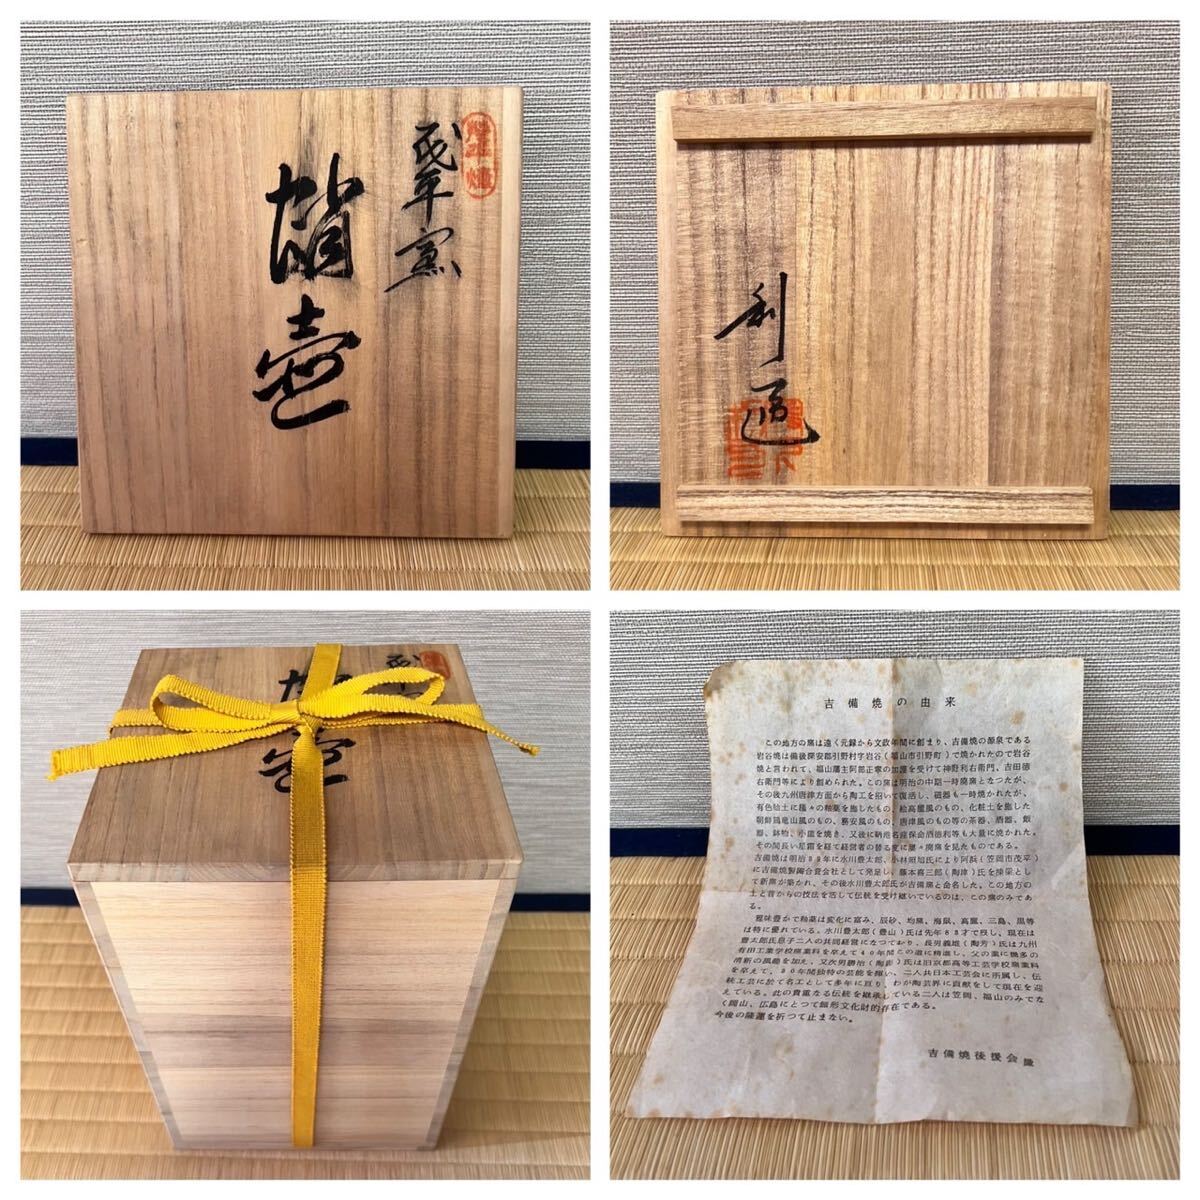 壺
利
壺
吉備焼の由来
この地方の窯は遠く元録から文政年間に創まり、吉備焼の源泉である
岩谷焼は備後深安郡引野村字岩谷(福山市引野町)で焼かれたので岩谷
焼と言われて、福山藩主阿部正寧の加護を受けて神野利右衛門、吉田徳
右衛門等により創められた。この窯は明治の中期一時廃窯となつたが、
その後九州唐津方面から陶工を招いて復活し、磁器も一時焼かれたが、
有色粘土に種々の釉薬を施したもの、絵高麗風のもの、化粧土を施した
朝鮮鶏竜山風のもの、務安風のもの、唐津風のもの等の茶器、酒器、飯
器、鉢物、小皿を焼き、又後に鞆港名産保命酒徳利等も大量に焼かれた。
その間長い星霜を経て経営者の替る度に屡々廃窯を見たものである。
吉備焼は明治39年に水川豊太郎、小林照旭氏により阿浜(笠岡市茂平)
に吉備焼製陶合資会社として発足し、藤本喜三郎(陶津)氏を陳栄とし
て新窯が築かれ、その後水川豊太郎氏が吉備窯と命名した。この地方の
土と昔からの技法を活して伝統を受け継いでいるのは、この窯のみであ
る。
雅味豊かで釉薬は変化に富み、辰砂、均窯、海鼠、高麗、三島、黒等
は特に優れている。水川豊太郎(豊山)氏は先年83才で歿し、現在は
豊太郎氏息子二人の共同経営になつており、長男義雄(陶芳)氏は九州
有田工業学校窯業科を卒えて40年間この道に精進し、父の業に幾多の
清新の風趣を加え、又次男勝治(陶影)氏は旧京都高等工芸学校窯業科
を卒えて、30年間独特の芸能を揮い、二人共日本工芸会に所属し、伝
統工芸に於て名工として多年に亘り、わが陶芸界に貢献をして現在を迎
えている。此の貴重なる伝統を継承している二人は笠岡、福山のみでな
く岡山、広島にとつて無形文化財的存在である。
今後の隆運を祈つて止まない。
吉備焼後援会識